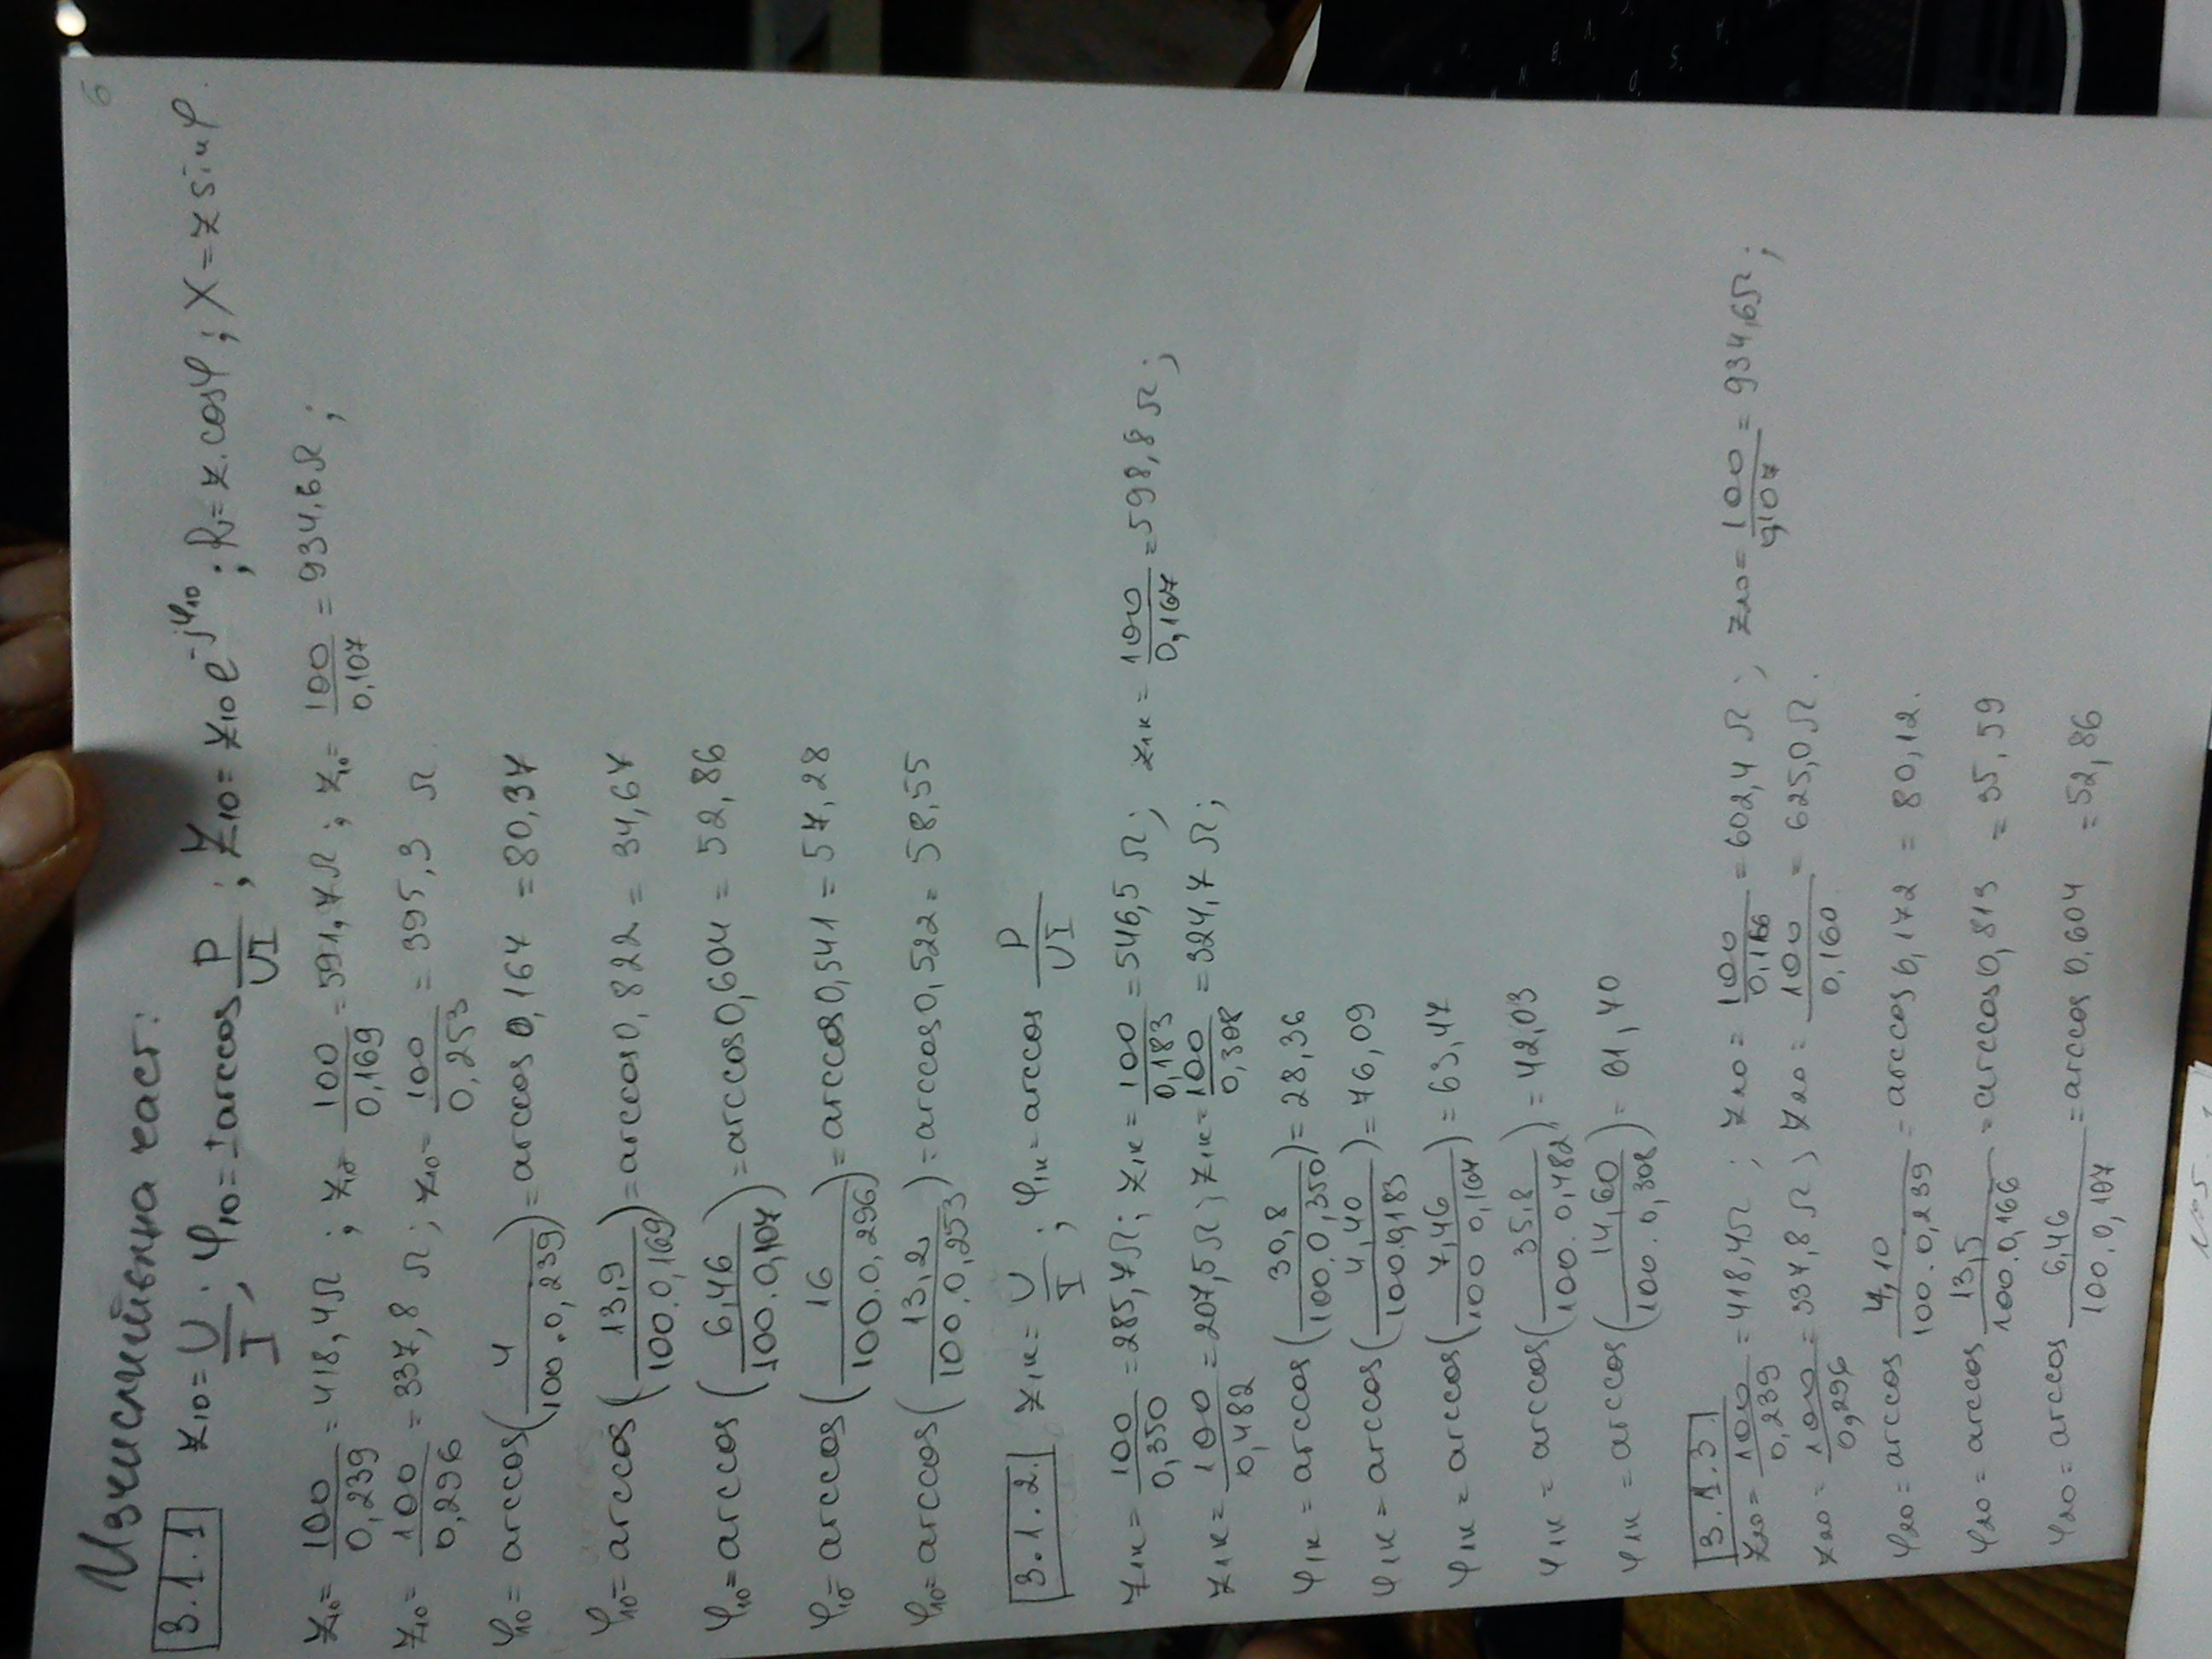 6
Изчислителна част:
3.1.1 z₁₀ = U/I, φ₁₀ = ± arccos P/UI ; Z₁₀ = z₁₀ e^(-jφ₁₀) ; R = z.cosφ ; X = z sinφ.
z₁₀ = 100/0,239 = 418,4Ω ; z₁₀ = 100/0,169 = 591,7Ω ; z₁₀ = 100/0,107 = 934,6Ω ;
z₁₀ = 100/0,296 = 337,8 Ω ; z₁₀ = 100/0,253 = 395,3 Ω.
φ₁₀ = arccos(4/100.0,239) = arccos 0,167 = 80,37
φ₁₀ = arccos(13,9/100.0,169) = arccos 0,822 = 34,67
φ₁₀ = arccos(6,46/100.0,107) = arccos 0,604 = 52,86
φ₁₀ = arccos(16/100.0,296) = arccos 0,541 = 57,28
φ₁₀ = arccos(13,2/100.0,253) = arccos 0,522 = 58,55
3.1.2. z₁ₖ = U/I ; φ₁ₖ = arccos P/UI
z₁ₖ = 100/0,350 = 285,7Ω ; z₁ₖ = 100/0,183 = 546,5 Ω ; z₁ₖ = 100/0,167 = 598,8 Ω ;
z₁ₖ = 100/0,482 = 207,5Ω ; z₁ₖ = 100/0,308 = 324,7 Ω ;
φ₁ₖ = arccos(30,8/100.0,350) = 28,36
φ₁ₖ = arccos(4,40/100.0,183) = 76,09
φ₁ₖ = arccos(7,46/100 0,167) = 63,47
φ₁ₖ = arccos(35,8/100.0,482) = 42,03
φ₁ₖ = arccos(14,60/100.0,308) = 61,70
3.1.3.
z₂₀ = 100/0,239 = 418,4Ω ; z₂₀ = 100/0,166 = 602,4 Ω ; z₂₀ = 100/0,107 = 934,6Ω ;
z₂₀ = 100/0,296 = 337,8 Ω ; z₂₀ = 100/0,160 = 625,0Ω.
φ₂₀ = arccos 4,10/100.0,239 = arccos 0,172 = 80,12.
φ₂₀ = arccos 13,5/100.0,166 = arccos 0,813 = 35,59
φ₂₀ = arccos 6,46/100.0,107 = arccos 0,604 = 52,86